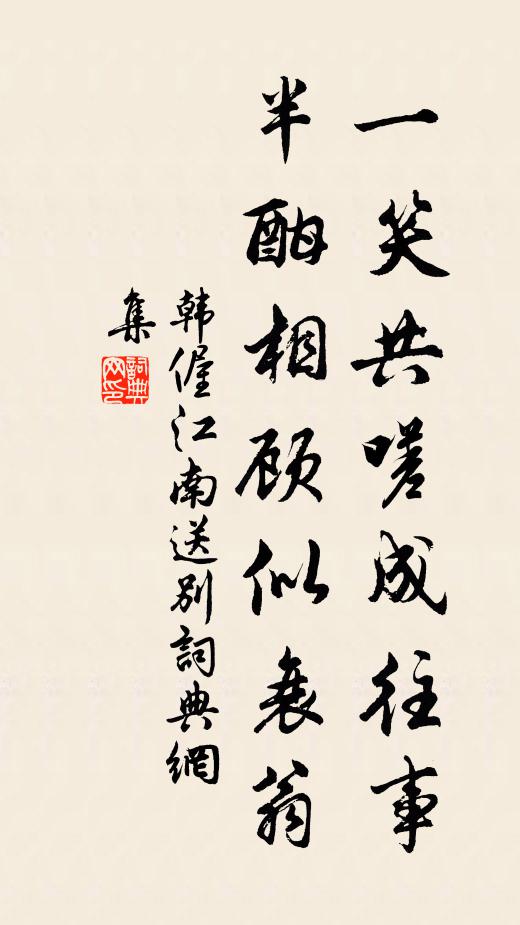 一笑共嗟成往事
半酣相顾似衰翁
韩偓江南送别詞典網
集
詞典网印